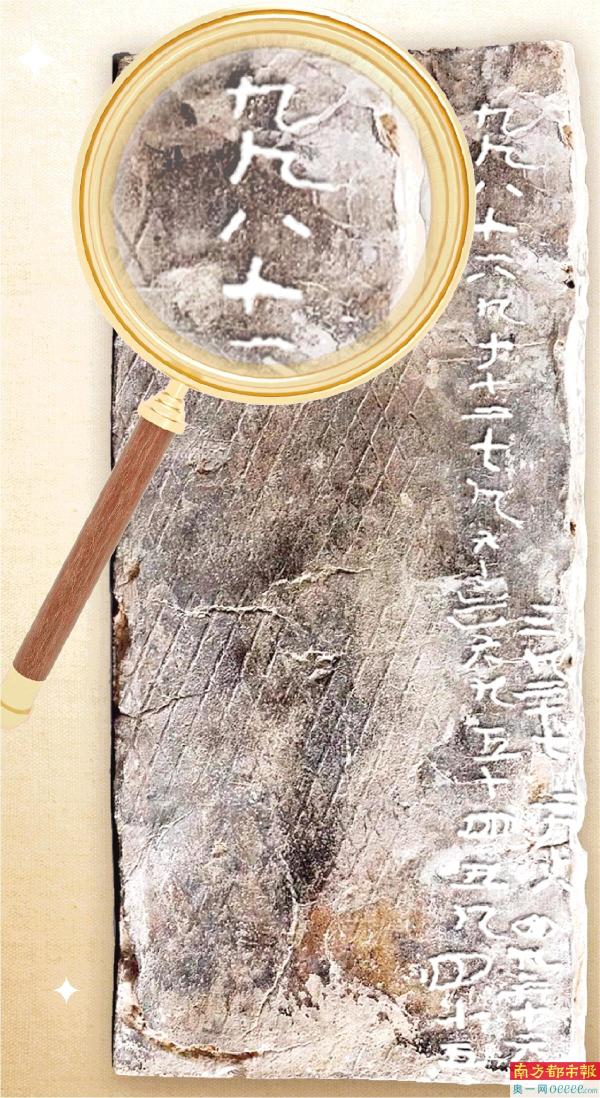 九九八十一
三九二十七二九十八四九三十六
九九八十一八九七十二七九六十三六九五十四五九四十五
南方都市報
奥一网oeeee.com